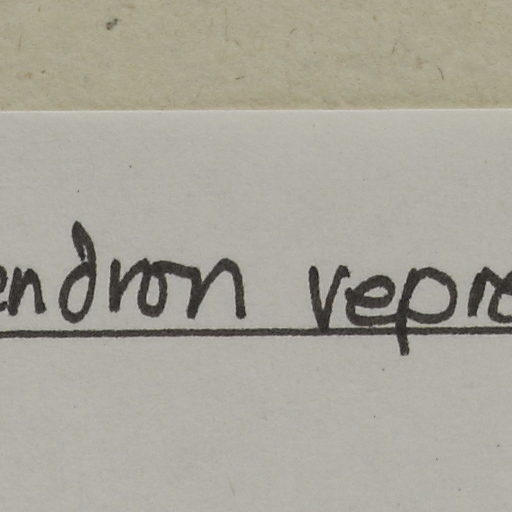 endron vepre